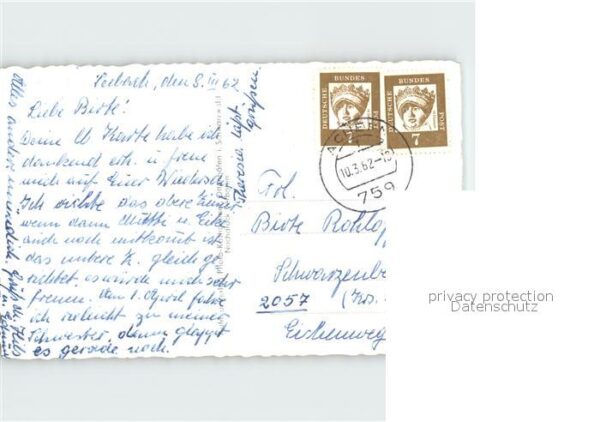 Seebach, den 8. III 62
Liebe Birte!
Deine lb Karte habe ich
dankend erh. u freue
mich auf Euer Wiederseh
Ich richte das obere Zimmer
wenn dann Mutti u. Eike
auch noch mitkommt ist
das untere Z. gleich ge
richtet, es würde mich sehr
freuen. den 1. April fahre
ich vielleicht zu meiner
Schwester, dann klappt
es gerade noch.
Alles andere mündlich. Gruß u. Kuß
Theresia läßt grüßen.
DEUTSCHE BUNDES POST
7
DEUTSCHE BUNDES POST
7
10.3.62
759
Frl.
Birte
Schwarzenbe
2057
privacy protection
Datenschutz